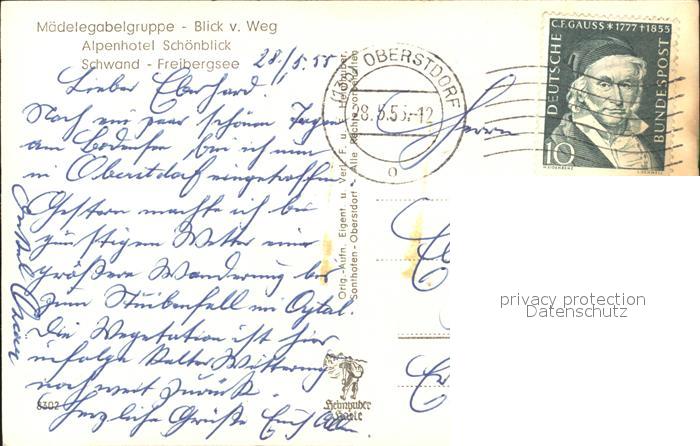 Mädelegabelgruppe - Blick v. Weg
Alpenhotel Schönblick
Schwand - Freibergsee
28./5.55
Lieber Eberhard.
Nach ein paar schönen Tagen
am Bodensee bin ich nun
in Oberstdorf eingetroffen
Gestern machte ich bei
günstigem Wetter eine
größere Wanderung bis
zum Stuibenfall im Oytal.
Die Vegetation ist hier
infolge kalter Witterung
noch weit zurück.
Herzliche Grüße Euch allen.
Onkel Oskar
8302
Orig.-Aufn. Eigent. u. Verl. F. u. E. Heimhuber,
Sonthofen-Oberstdorf - Alle Rechte vorbehalten
Heimhuber
Karte
OBERSTDORF
28.5.55.-12
Herrn
DEUTSCHE
C.F.GAUSS * 1777 † 1855
BUNDESPOST
10
privacy protection
Datenschutz